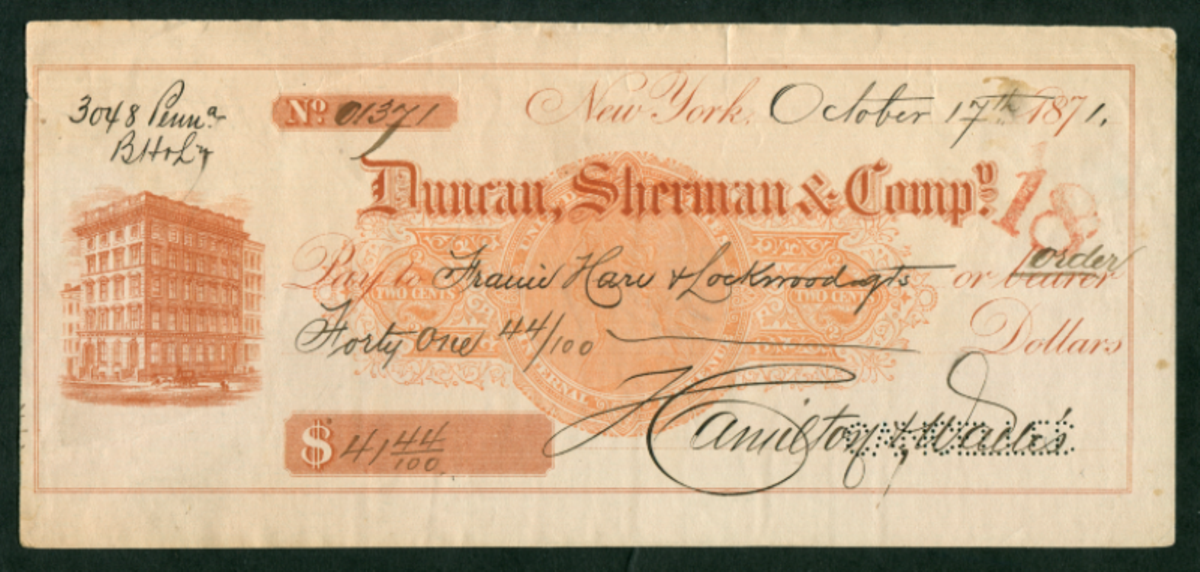 3048 Penna
No. 01371
New York, October 17th 1871.
Duncan, Sherman & Compy.
18
Pay to Hare & Lockwood or bearer order
TWO CENTS TWO CENTS
Forty One 44/100 Dollars
$ 41 44/100
Hamilton &